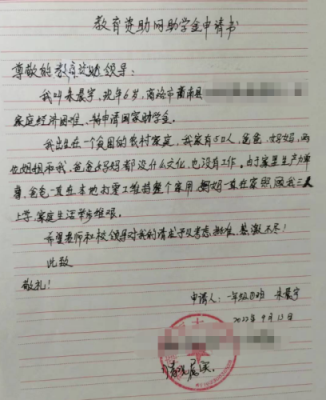 教育资助网助学金申请书
尊敬的教育资助领导:
我叫朱晨宇,现年6岁,商洛市商南县
家庭经济困难、特申请国家助学金。
我出生在一个贫困的农村家庭,我家有5口人,爸爸、妈妈、两
位姐姐和我,爸爸妈妈都没什么文化,也没有工作。由于家里生产力单
薄,爸爸一直在本地打零工维持整个家用,妈妈一直在家照顾我三人
上学,家庭生活举步维艰。
希望老师和校领导对我的请求予以考虑批准,感激不尽!
此致
敬礼!
申请人:一年级 朱晨宇
2022年9月13日
情况属实